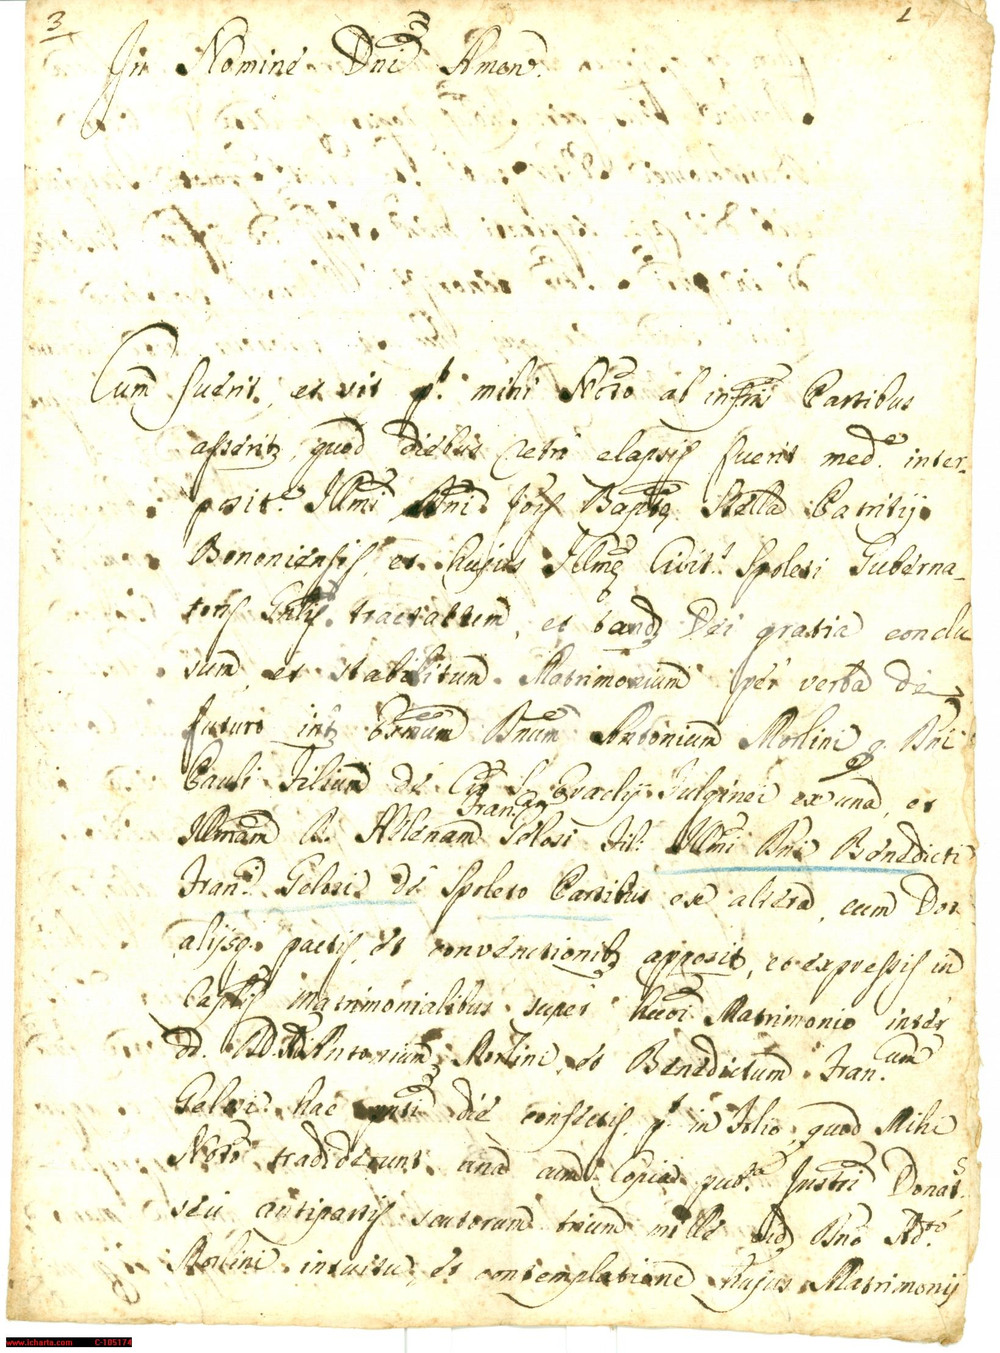 3
1
In Nomine Dni Amen.
Cum fuerit, et sit pt. mihi Notro ab infris Partibus
assertz, quod diebus retri elapsis fuerit med.e inter-
posit.e Illmi Dni Jois Baptæ Stella Patritij
Bononiensis, et hujus Illmæ Civit.s Spoleti Guberna-
toris Gnlis tractatum, et tandz Dei gratia conclu
sum, et stabilitum Matrimonium per verba de
futuro intz Dnum Antonium Morlini q. Dni
Pauli Filium de S. Eraclij Fulginei ex una, et
Illmam D. Helenam Fran.cam Gelosi fil: Illmi Dni Benedicti
Fran.i Gelosi de Spoleto Partibus ex altera, cum Dot
alijsq. pactis, et conventionibz apposit, et expressis in
Caplis matrimonialibus super hmoi Matrimonio inter
dd. DD. Antonium Morlini, et Benedictum Fran.cum
Gelosi hac pnti die confectis, pt. in folio, quod Mihi
Notro tradiderunt una cum Copia pub.a Instri Donat.s
seu antiparti scutorum trium mille dicto Dno Ant.o
Morlini intuitu, et contemplatione hujus Matrimonij
www.icharta.com C-105174